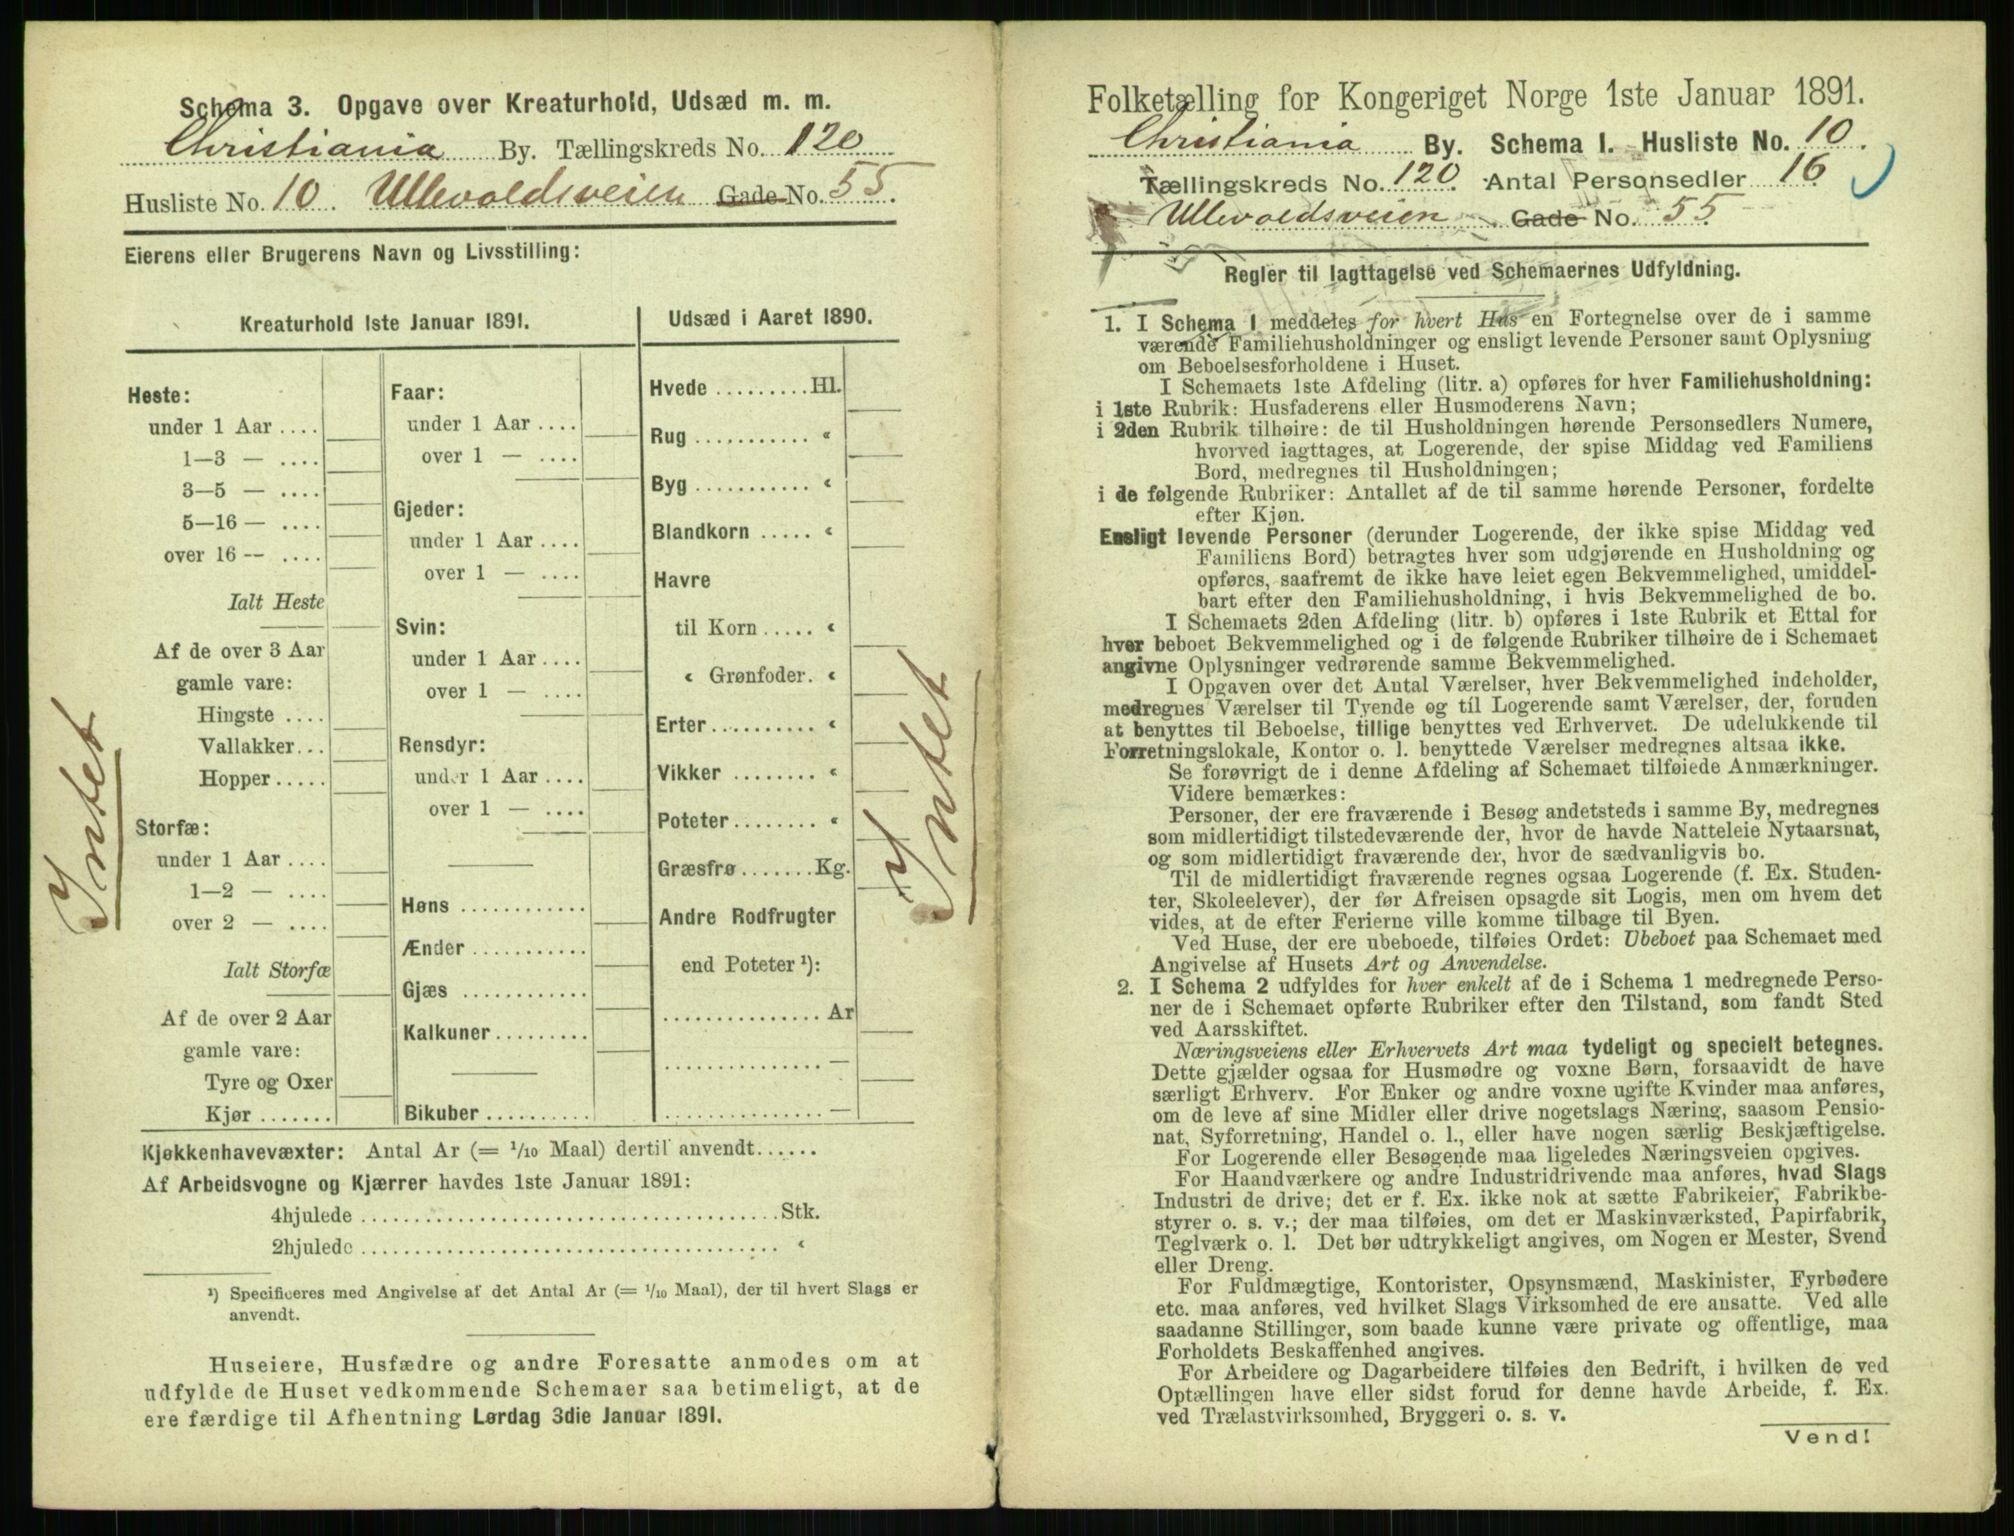 Schema 3. Opgave over Kreaturhold, Udsæd m. m.
Christiania By. Tællingskreds No. 120
Husliste No. 10. Ullevoldsveien Gade No. 55.
Eierens eller Brugerens Navn og Livsstilling:
Kreaturhold 1ste Januar 1891.
Heste:
under 1 Aar ....
1—3 — ....
3—5 — ....
5—16 — ....
over 16 — ....
Ialt Heste
Af de over 3 Aar
gamle vare:
Hingste ....
Vallakker...
Hopper.....
Storfæ:
under 1 Aar ....
1—2 — ....
over 2 — ....
Ialt Storfæ
Af de over 2 Aar
gamle vare:
Tyre og Oxer
Kjør .......
Faar:
under 1 Aar ....
over 1 — ....
Gjeder:
under 1 Aar ....
over 1 — ....
Svin:
under 1 Aar ....
over 1 — ....
Rensdyr:
under 1 Aar ....
over 1 — ....
Høns ............
Ænder ...........
Gjæs ............
Kalkuner.........
Bikuber ..........
Udsæd i Aaret 1890.
Hvede .........Hl.
Rug ........... “
Byg ........... “
Blandkorn ..... “
Havre
til Korn..... “
“ Grønfoder. “
Erter.......... “
Vikker ........ “
Poteter........ “
Græsfrø.......Kg.
Andre Rodfrugter
end Poteter ¹):
............... Ar
............... —
............... —
Intet
Intet
Kjøkkenhavevæxter: Antal Ar (= ¹/₁₀ Maal) dertil anvendt......
Af Arbeidsvogne og Kjærrer havdes 1ste Januar 1891:
4hjulede .......................................Stk.
2hjulede ....................................... “
¹) Specificeres med Angivelse af det Antal Ar (= ¹/₁₀ Maal), der til hvert Slags er
anvendt.
Huseiere, Husfædre og andre Foresatte anmodes om at
udfylde de Huset vedkommende Schemaer saa betimeligt, at de
ere færdige til Afhentning Lørdag 3die Januar 1891.
Folketælling for Kongeriget Norge 1ste Januar 1891.
Christiania By. Schema 1. Husliste No. 10.
Tællingskreds No. 120. Antal Personsedler 16.
Ullevoldsveien Gade No. 55
Regler til Iagttagelse ved Schemaernes Udfyldning.
1. I Schema 1 meddeles for hvert Hus en Fortegnelse over de i samme
værende Familiehusholdninger og ensligt levende Personer samt Oplysning
om Beboelsesforholdene i Huset.
I Schemaets 1ste Afdeling (litr. a) opføres for hver Familiehusholdning:
i 1ste Rubrik: Husfaderens eller Husmoderens Navn;
i 2den Rubrik tilhøire: de til Husholdningen hørende Personsedlers Numere,
hvorved iagttages, at Logerende, der spise Middag ved Familiens
Bord, medregnes til Husholdningen;
i de følgende Rubriker: Antallet af de til samme hørende Personer, fordelte
efter Kjøn.
Ensligt levende Personer (derunder Logerende, der ikke spise Middag ved
Familiens Bord) betragtes hver som udgjørende en Husholdning og
opføres, saafremt de ikke have leiet egen Bekvemmelighed, umiddel-
bart efter den Familiehusholdning, i hvis Bekvemmelighed de bo.
I Schemaets 2den Afdeling (litr. b) opføres i 1ste Rubrik et Ettal for
hver beboet Bekvemmelighed og i de følgende Rubriker tilhøire de i Schemaet
angivne Oplysninger vedrørende samme Bekvemmelighed.
I Opgaven over det Antal Værelser, hver Bekvemmelighed indeholder,
medregnes Værelser til Tyende og til Logerende samt Værelser, der, foruden
at benyttes til Beboelse, tillige benyttes ved Erhvervet. De udelukkende til
Forretningslokale, Kontor o. l. benyttede Værelser medregnes altsaa ikke.
Se forøvrigt de i denne Afdeling af Schemaet tilføiede Anmærkninger.
Videre bemærkes:
Personer, der ere fraværende i Besøg andetsteds i samme By, medregnes
som midlertidigt tilstedeværende der, hvor de havde Natteleie Nytaarsnat,
og som midlertidigt fraværende der, hvor de sædvanligvis bo.
Til de midlertidigt fraværende regnes ogsaa Logerende (f. Ex. Studen-
ter, Skoleelever), der før Afreisen opsagde sit Logis, men om hvem det
vides, at de efter Ferierne ville komme tilbage til Byen.
Ved Huse, der ere ubeboede, tilføies Ordet: Ubeboet paa Schemaet med
Angivelse af Husets Art og Anvendelse.
2. I Schema 2 udfyldes for hver enkelt af de i Schema 1 medregnede Perso-
ner de i Schemaet opførte Rubriker efter den Tilstand, som fandt Sted
ved Aarsskiftet.
Næringsveiens eller Erhvervets Art maa tydeligt og specielt betegnes.
Dette gjælder ogsaa for Husmødre og voxne Børn, forsaavidt de have
særligt Erhverv. For Enker og andre voxne ugifte Kvinder maa anføres,
om de leve af sine Midler eller drive nogetslags Næring, saasom Pensio-
nat, Syforretning, Handel o. l., eller have nogen særlig Beskjæftigelse.
For Logerende eller Besøgende maa ligeledes Næringsveien opgives.
For Haandværkere og andre Industridrivende maa anføres, hvad Slags
Industri de drive; det er f. Ex. ikke nok at sætte Fabrikeier, Fabrikbe-
styrer o. s. v.; der maa tilføies, om det er Maskinværksted, Papirfabrik,
Teglværk o. l. Det bør udtrykkeligt angives, om Nogen er Mester, Svend
eller Dreng.
For Fuldmægtige, Kontorister, Opsynsmænd, Maskinister, Fyrbødere
etc. maa anføres, ved hvilket Slags Virksomhed de ere ansatte. Ved alle
saadanne Stillinger, som baade kunne være private og offentlige, maa
Forholdets Beskaffenhed angives.
For Arbeidere og Dagarbeidere tilføies den Bedrift, i hvilken de ved
Optællingen have eller sidst forud for denne havde Arbeide, f. Ex.
ved Trælastvirksomhed, Bryggeri o. s. v.
Vend!